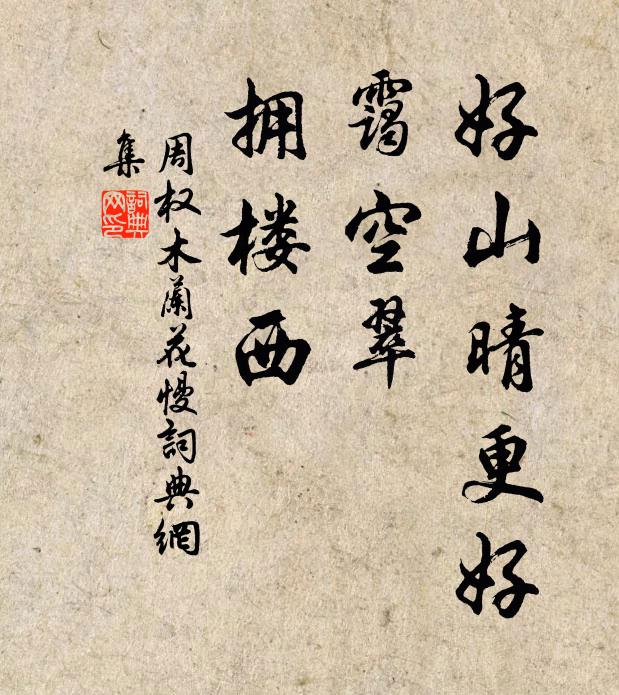 好山晴更好
霭空翠
拥楼西
周权木蘭花慢詞典網
集
詞典
网印